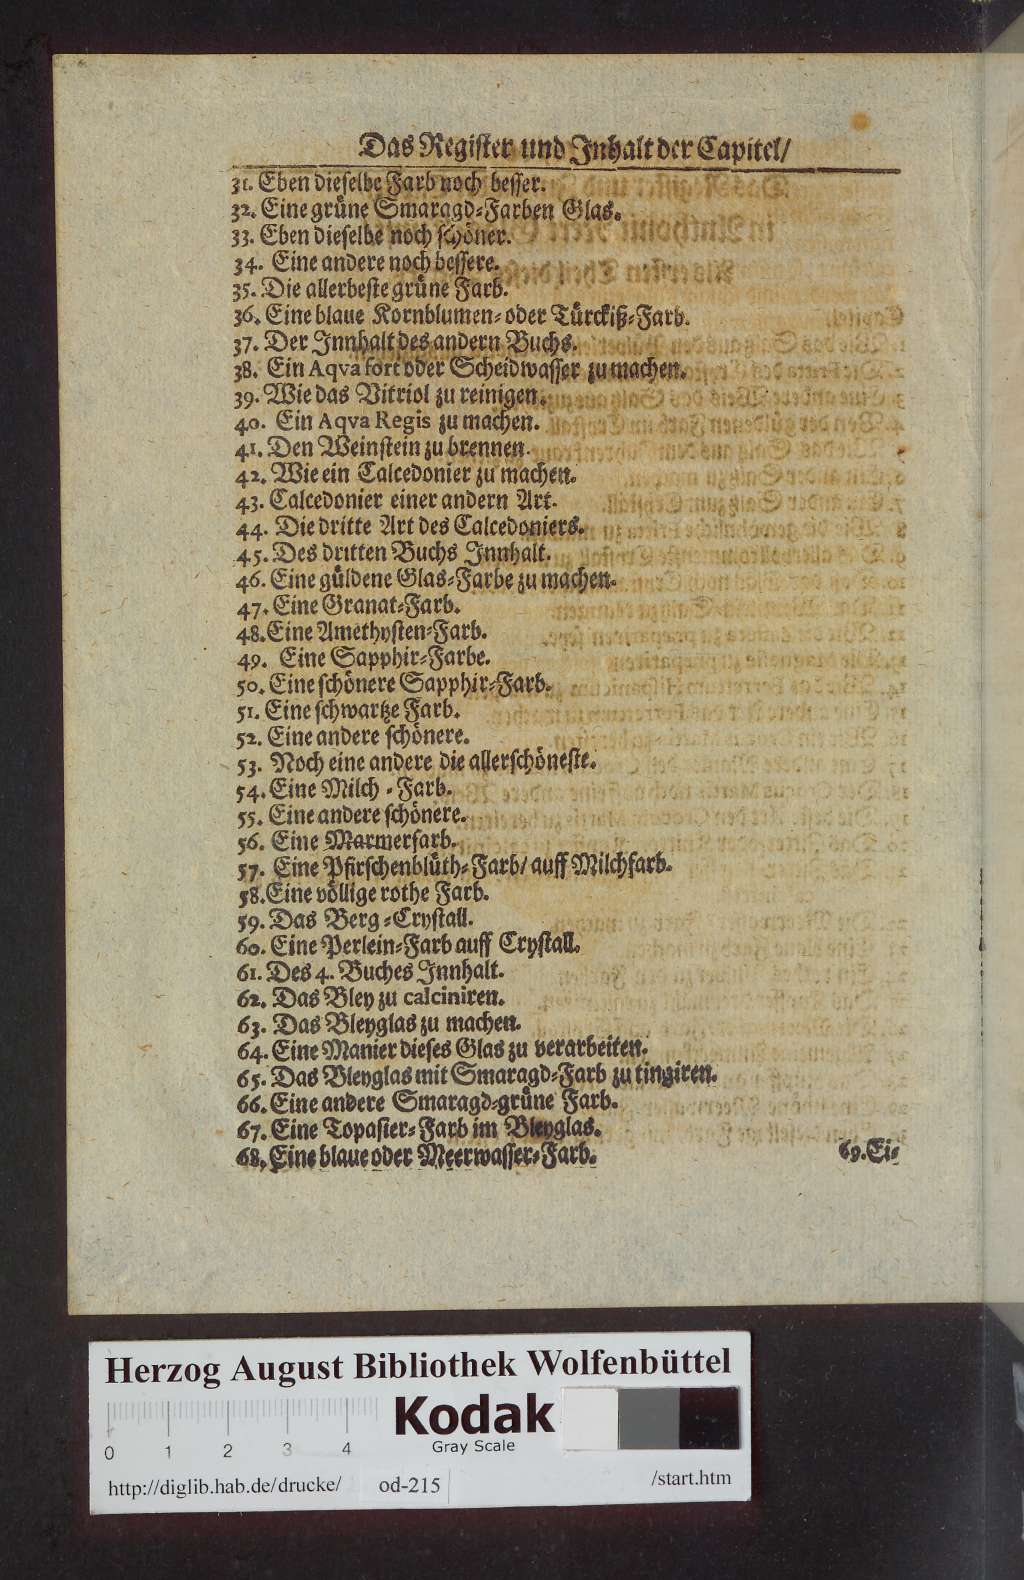 Das Register und Innhalt der Capitel/
31. Eben dieselbe Farb noch besser.
32. Eine grüne Smaragd-Farben Glas.
33. Eben dieselbe noch schöner.
34. Eine andere noch bessere.
35. Die allerbeste grüne Farb.
36. Eine blaue Kornblumen- oder Türckiß-Farb.
37. Der Innhalt des andern Buchs.
38. Ein Aqva fort oder Scheidwasser zu machen.
39. Wie das Vitriol zu reinigen.
40. Ein Aqva Regis zu machen.
41. Den Weinstein zu brennen.
42. Wie ein Calcedonier zu machen.
43. Calcedonier einer andern Art.
44. Die dritte Art des Calcedoniers.
45. Des dritten Buchs Innhalt.
46. Eine güldene Glas-Farbe zu machen.
47. Eine Granat-Farb.
48. Eine Amethysten-Farb.
49. Eine Sapphir-Farbe.
50. Eine schönere Sapphir-Farb.
51. Eine schwartze Farb.
52. Eine andere schönere.
53. Noch eine andere die allerschöneste.
54. Eine Milch-Farb.
55. Eine andere schönere.
56. Eine Marmerfarb.
57. Eine Pfirschenblüth-Farb/ auff Milchfarb.
58. Eine völlige rothe Farb.
59. Das Berg-Crystall.
60. Eine Perlein-Farb auff Crystall.
61. Des 4. Buches Innhalt.
62. Das Bley zu calciniren.
63. Das Bleyglas zu machen.
64. Eine Manier dieses Glas zu verarbeiten.
65. Das Bleyglas mit Smaragd-Farb zu tingiren.
66. Eine andere Smaragd-grüne Farb.
67. Eine Topasier-Farb im Bleyglas.
68. Eine blaue oder Meerwasser-Farb.
69. Ei-
Herzog August Bibliothek Wolfenbüttel
Kodak
Gray Scale
0 1 2 3 4
http://diglib.hab.de/drucke/ od-215 /start.htm